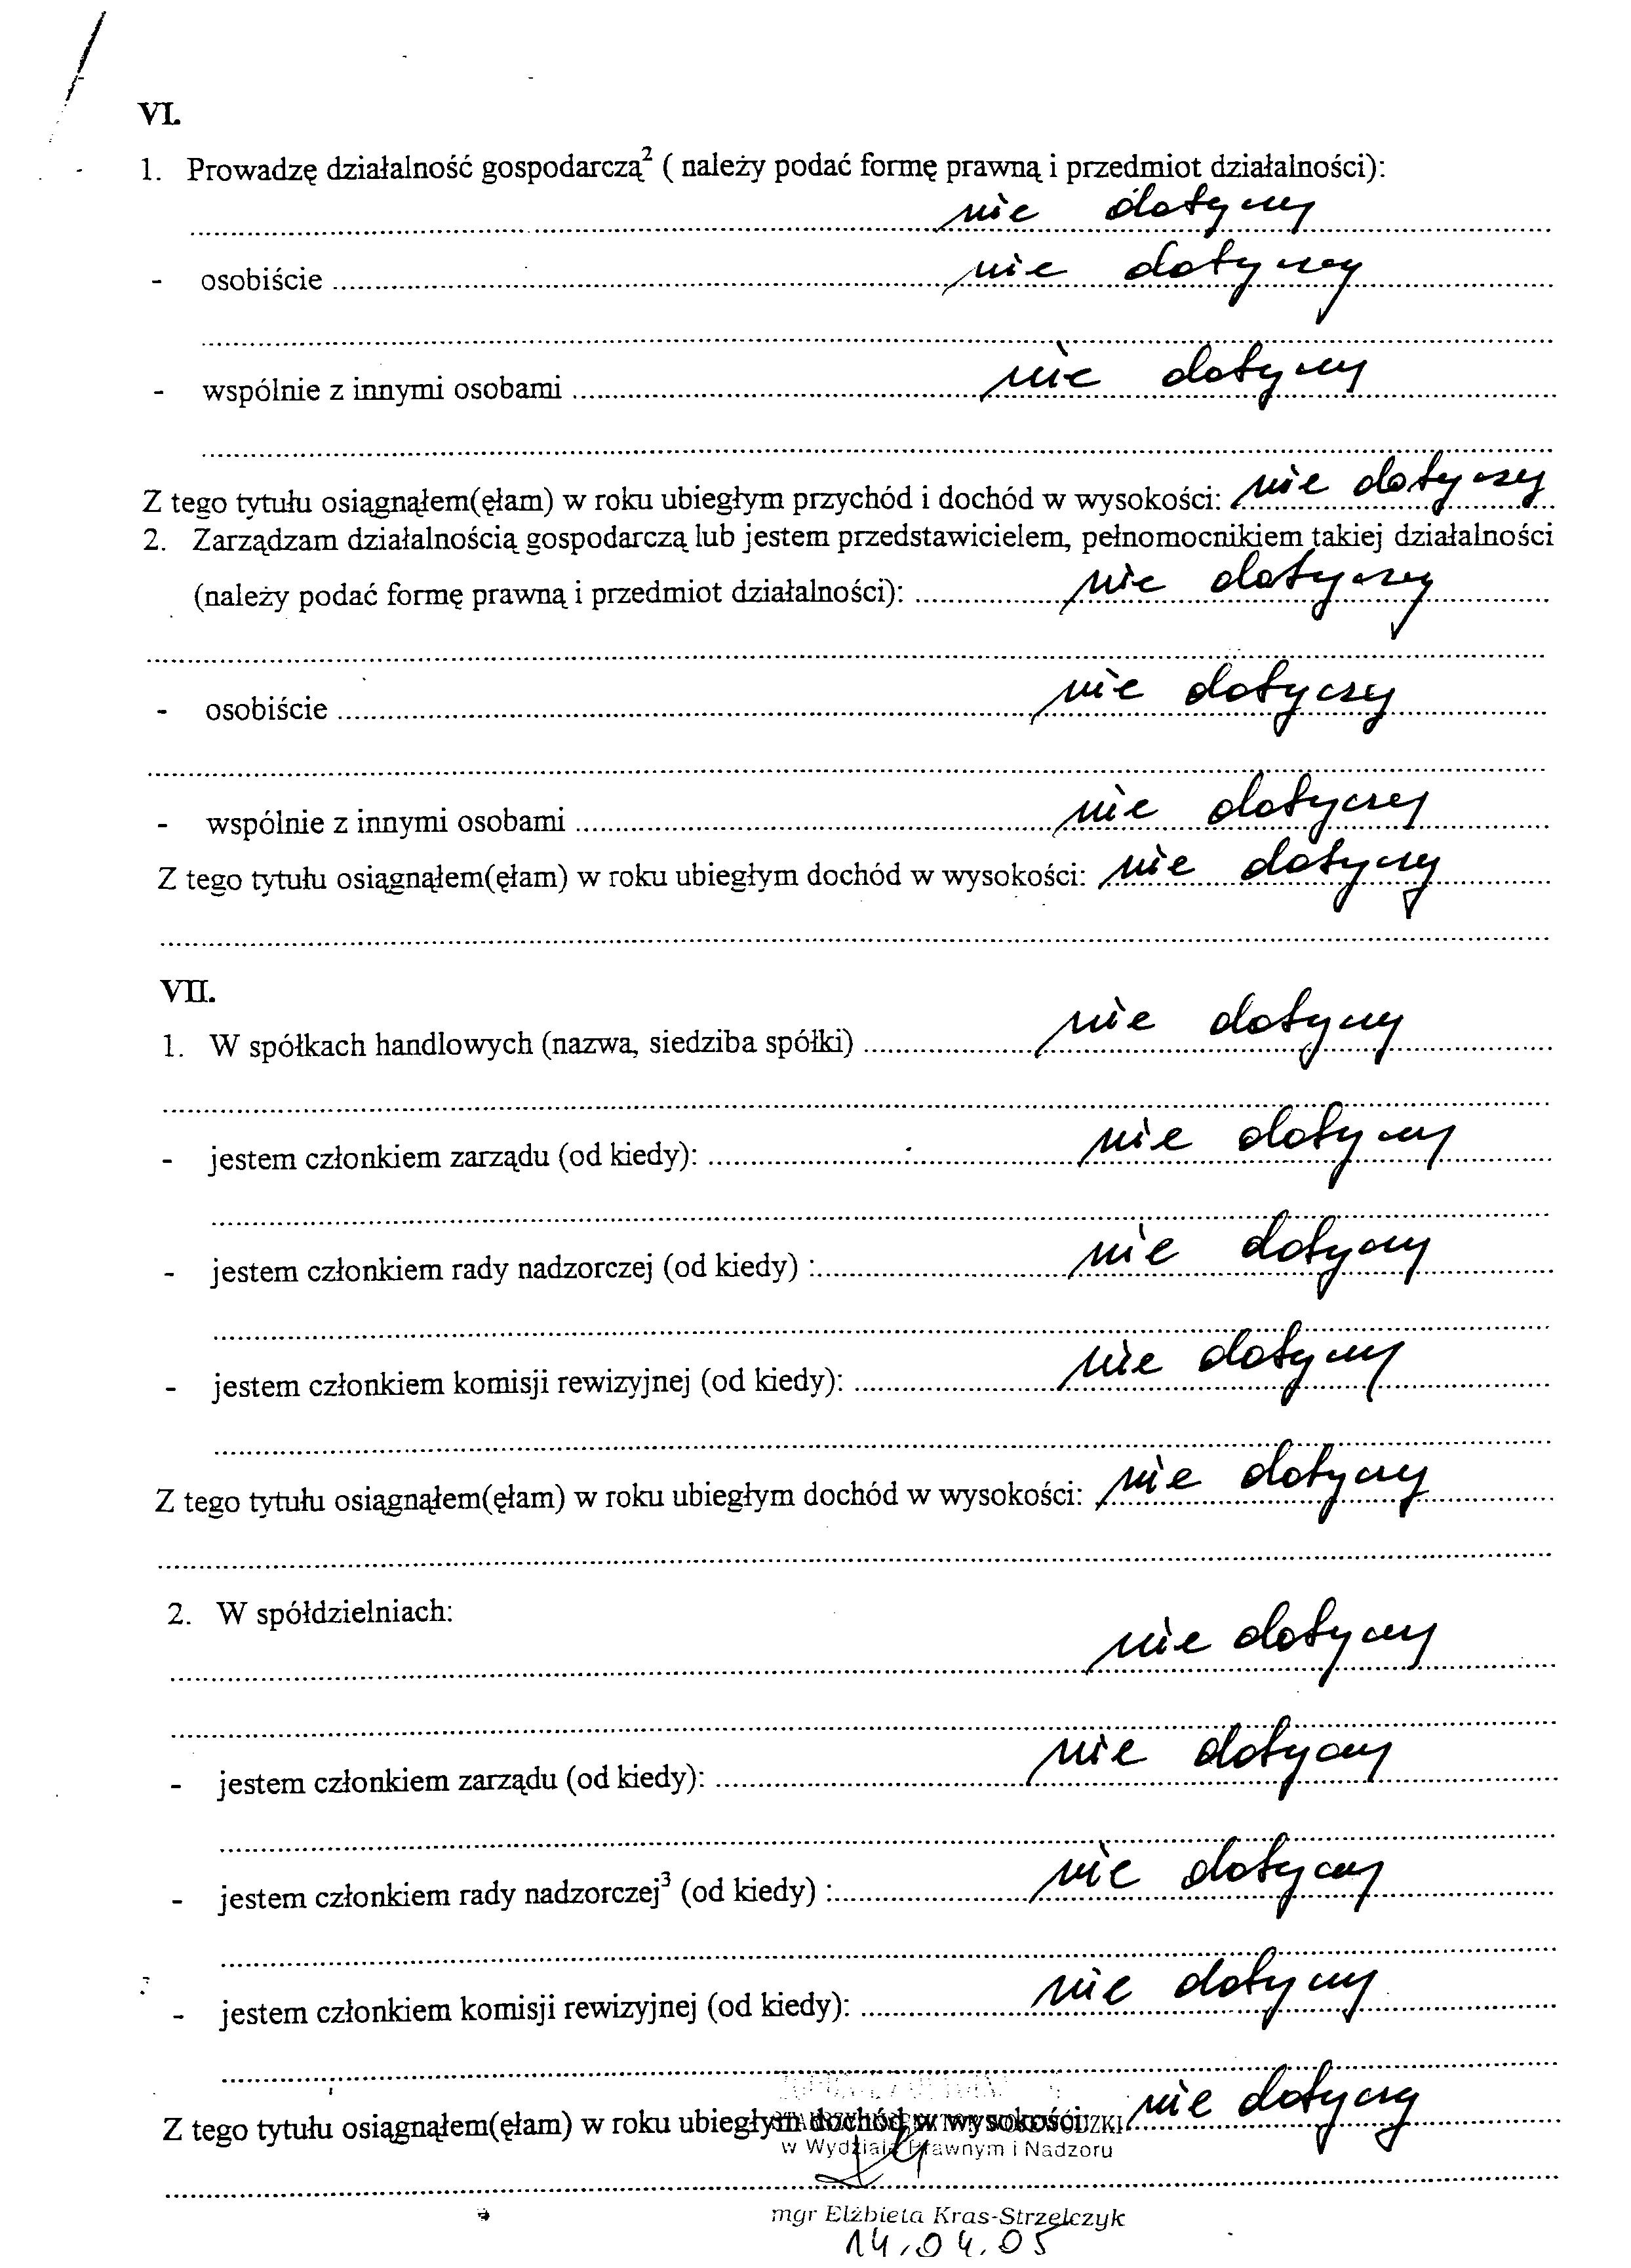 VI.
1. Prowadzę działalność gospodarczą² ( należy podać formę prawną i przedmiot działalności):
nie dotyczy
- osobiście nie dotyczy
- wspólnie z innymi osobami nie dotyczy
Z tego tytułu osiągnąłem(ęłam) w roku ubiegłym przychód i dochód w wysokości: nie dotyczy
2. Zarządzam działalnością gospodarczą lub jestem przedstawicielem, pełnomocnikiem takiej działalności
(należy podać formę prawną i przedmiot działalności): nie dotyczy
- osobiście nie dotyczy
- wspólnie z innymi osobami nie dotyczy
Z tego tytułu osiągnąłem(ęłam) w roku ubiegłym dochód w wysokości: nie dotyczy
VII.
1. W spółkach handlowych (nazwa, siedziba spółki) nie dotyczy
- jestem członkiem zarządu (od kiedy): nie dotyczy
- jestem członkiem rady nadzorczej (od kiedy) : nie dotyczy
- jestem członkiem komisji rewizyjnej (od kiedy): nie dotyczy
Z tego tytułu osiągnąłem(ęłam) w roku ubiegłym dochód w wysokości: nie dotyczy
2. W spółdzielniach:
nie dotyczy
- jestem członkiem zarządu (od kiedy): nie dotyczy
- jestem członkiem rady nadzorczej³ (od kiedy) : nie dotyczy
- jestem członkiem komisji rewizyjnej (od kiedy): nie dotyczy
Z tego tytułu osiągnąłem(ęłam) w roku ubiegłym dochód w wysokości: nie dotyczy
w Wydziale Prawnym i Nadzoru
mgr Elżbieta Kras-Strzelczyk
14.04.05